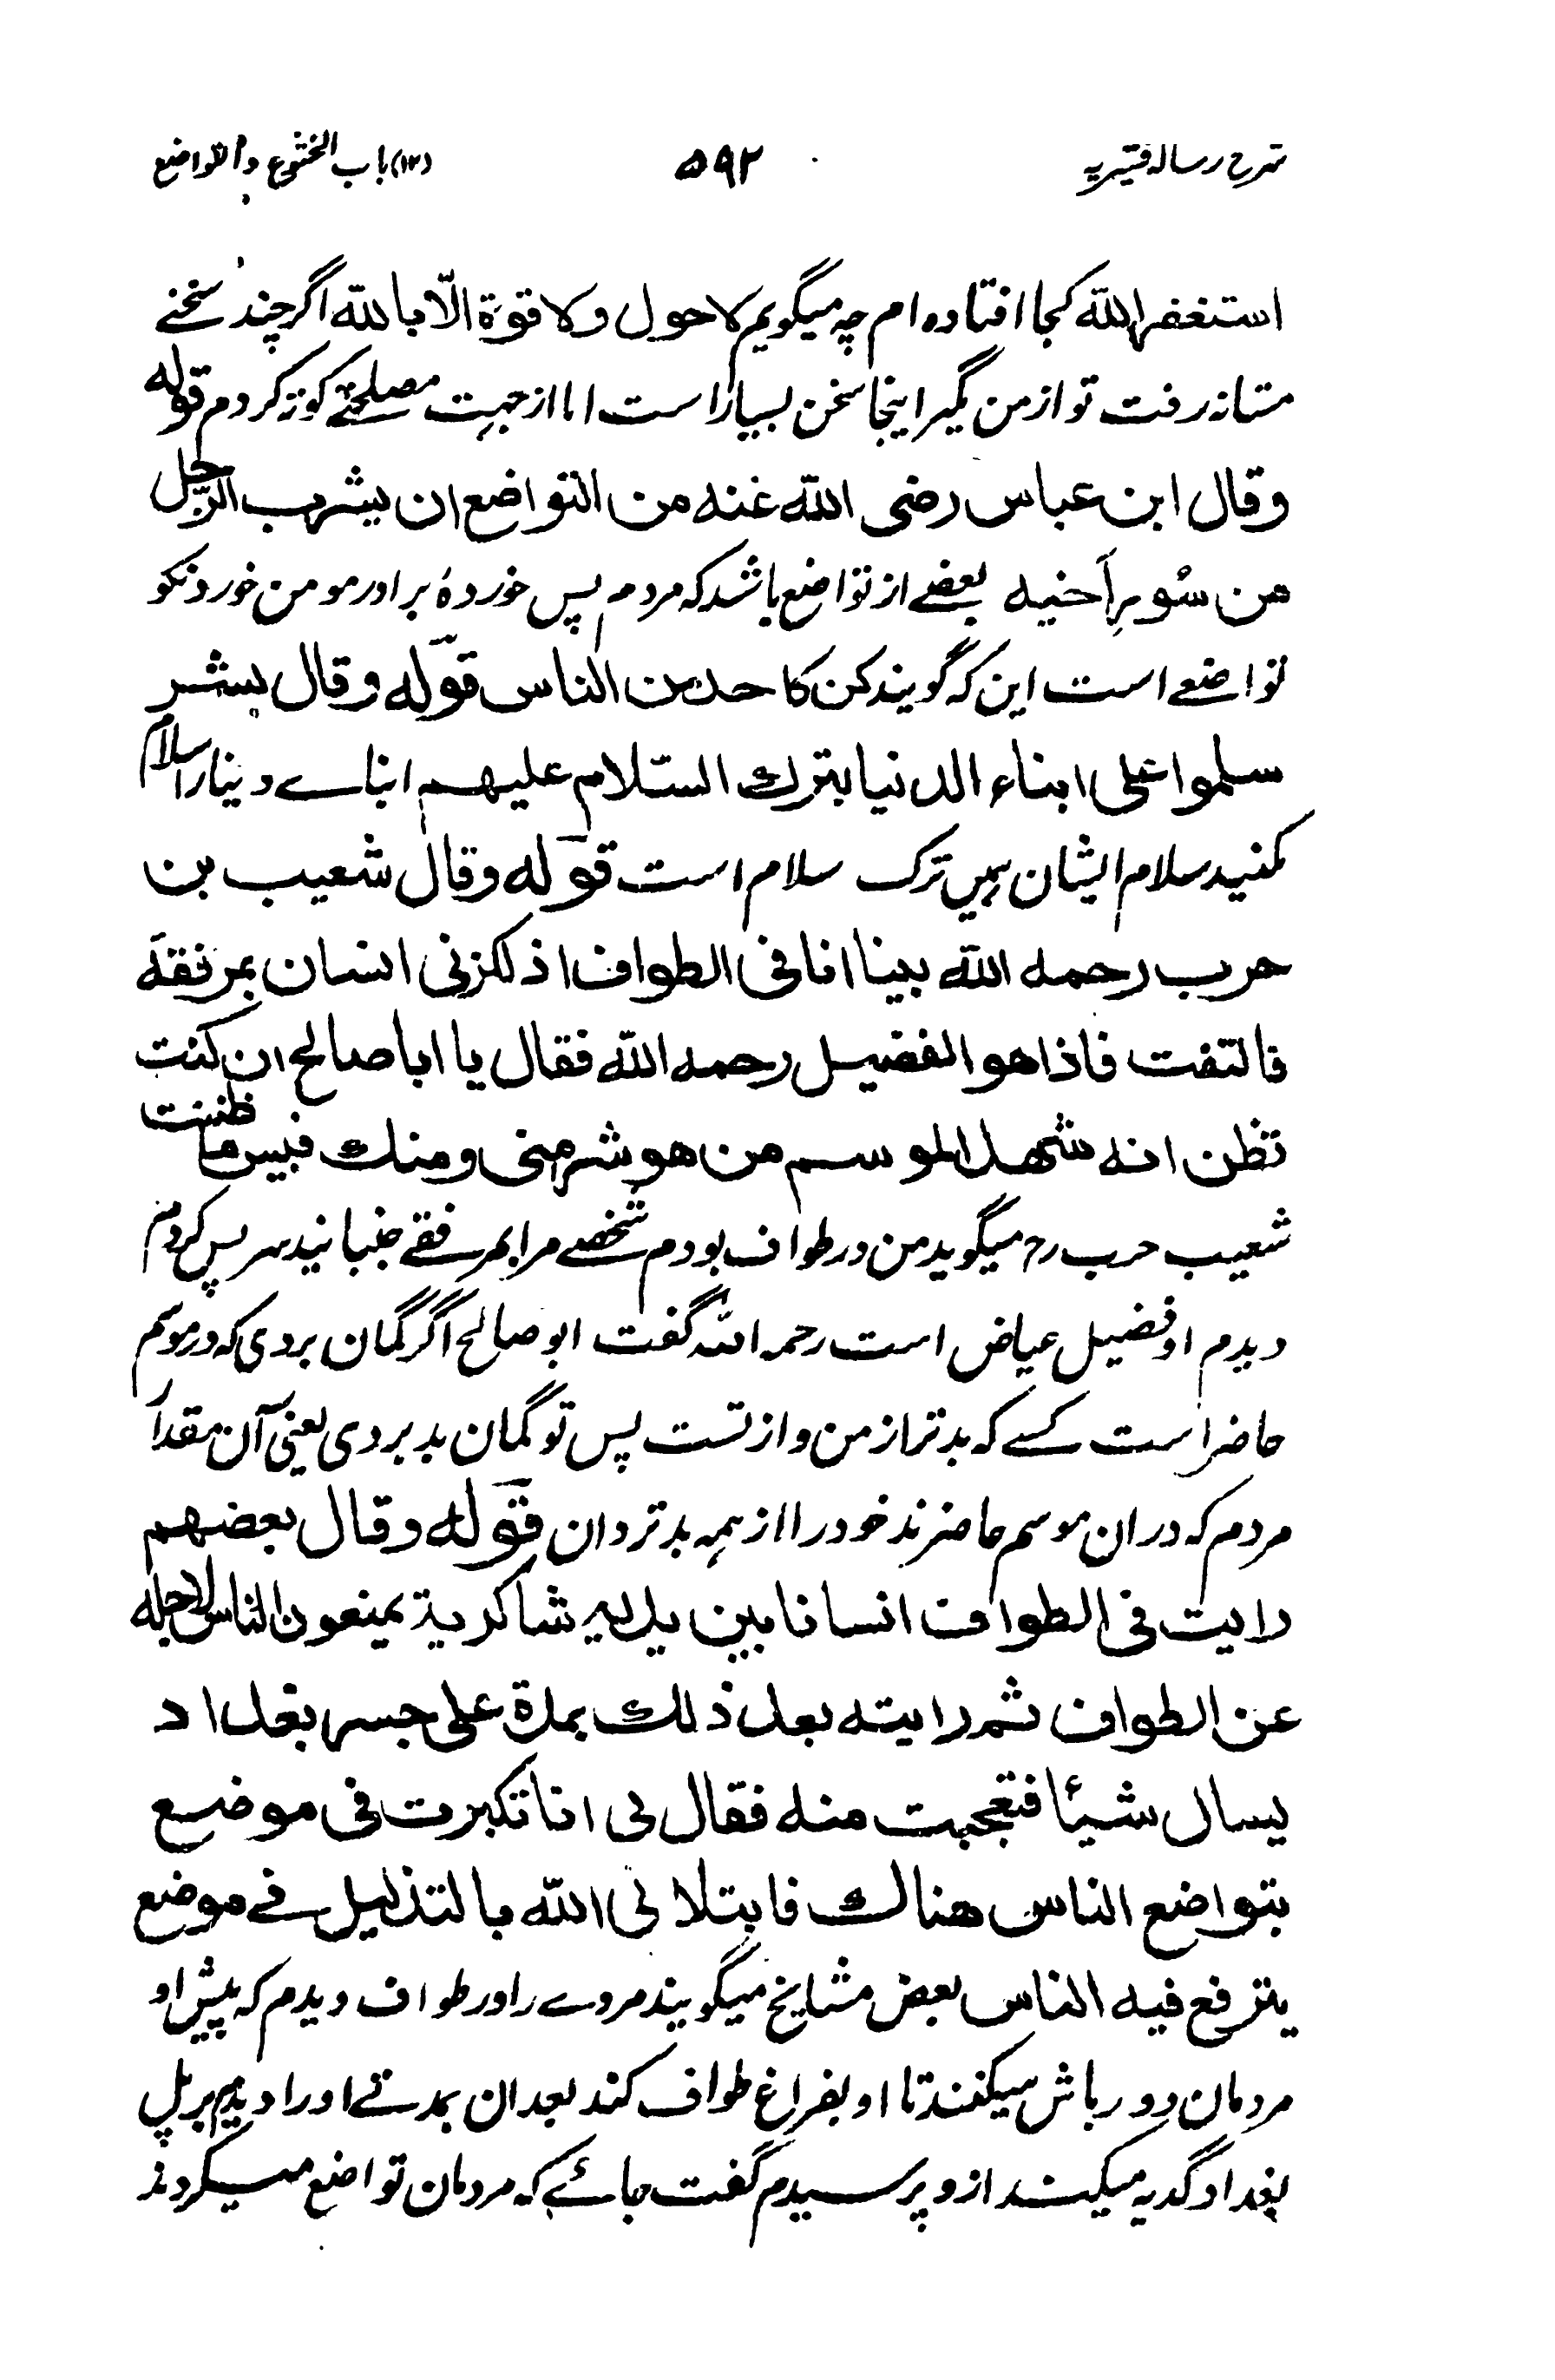 شرح رساله قشیریه ۵۹۲ (۱۳) باب الخشوع والتواضع
استغفر الله کجا افتاده ام چه میگویم لا حول ولا قوة الّا بالله اگر چند سخنے
مستانه رفت تو از من مگیر اینجا سخن بسیار است اما از جهت مصلحتے کوته کردم قوله
وقال ابن عباس رضی الله عنه من التواضع ان یشرب الرجل
من سُوْرِ اَخیه بعضے از تواضع باشد که مردم پس خوردۀ برادر مومن خورد نکو
تواضعے است این که گویند کن کاحد من الناس قوله وقال بشر
سلموا علی ابناء الدنیا بترک السّلام علیهم ابناے دنیا را سلام
مکنید سلام ایشان همیں ترک سلام است قوله وقال شعیب بن
حرب رحمه الله بینا انا فی الطواف اذ لکزنی انسان بمرفقه
فالتفت فاذا هو الفضیل رحمه الله فقال یا ابا صالح ان کنت
تظن انه شهد الموسم من هو شر منی ومنک فبیس ما ظننت
شعیب حرب رح میگوید من در طواف بودم شخصے مرا بمرفقے جنبانید سر پس کردم
دیدم او فضیل عیاض است رحمه الله گفت ابو صالح اگر گمان بردی که در موسم
حاضر است کسے که بدتر از من و از تست پس تو گمان بد بردی یعنی آن مقدار
مردم که دران موسم حاضرند خود را از همه بدتر دان قوله وقال بعضهم
رایت فی الطواف انسانا بین یدیه شاکریة یمنعون الناس لاجله
عن الطواف ثم رایته بعد ذلک بمدة علی جسر بغداد
یسال شیئا فتعجبت منه فقال لی انا تکبرت فی موضع
یتواضع الناس هنالک فابتلانی الله بالتذلیل فے موضع
یترفع فیه الناس بعض مشایخ میگویند مردے را در طواف دیدم که پیش او
مردمان دور باش میکنند تا او بفراغ طواف کند بعد ان بمدتے اورا دیدم بر پل
بغداد گدیه میکند ازو پرسیدم گفت جائے که مردمان تواضع میکردند